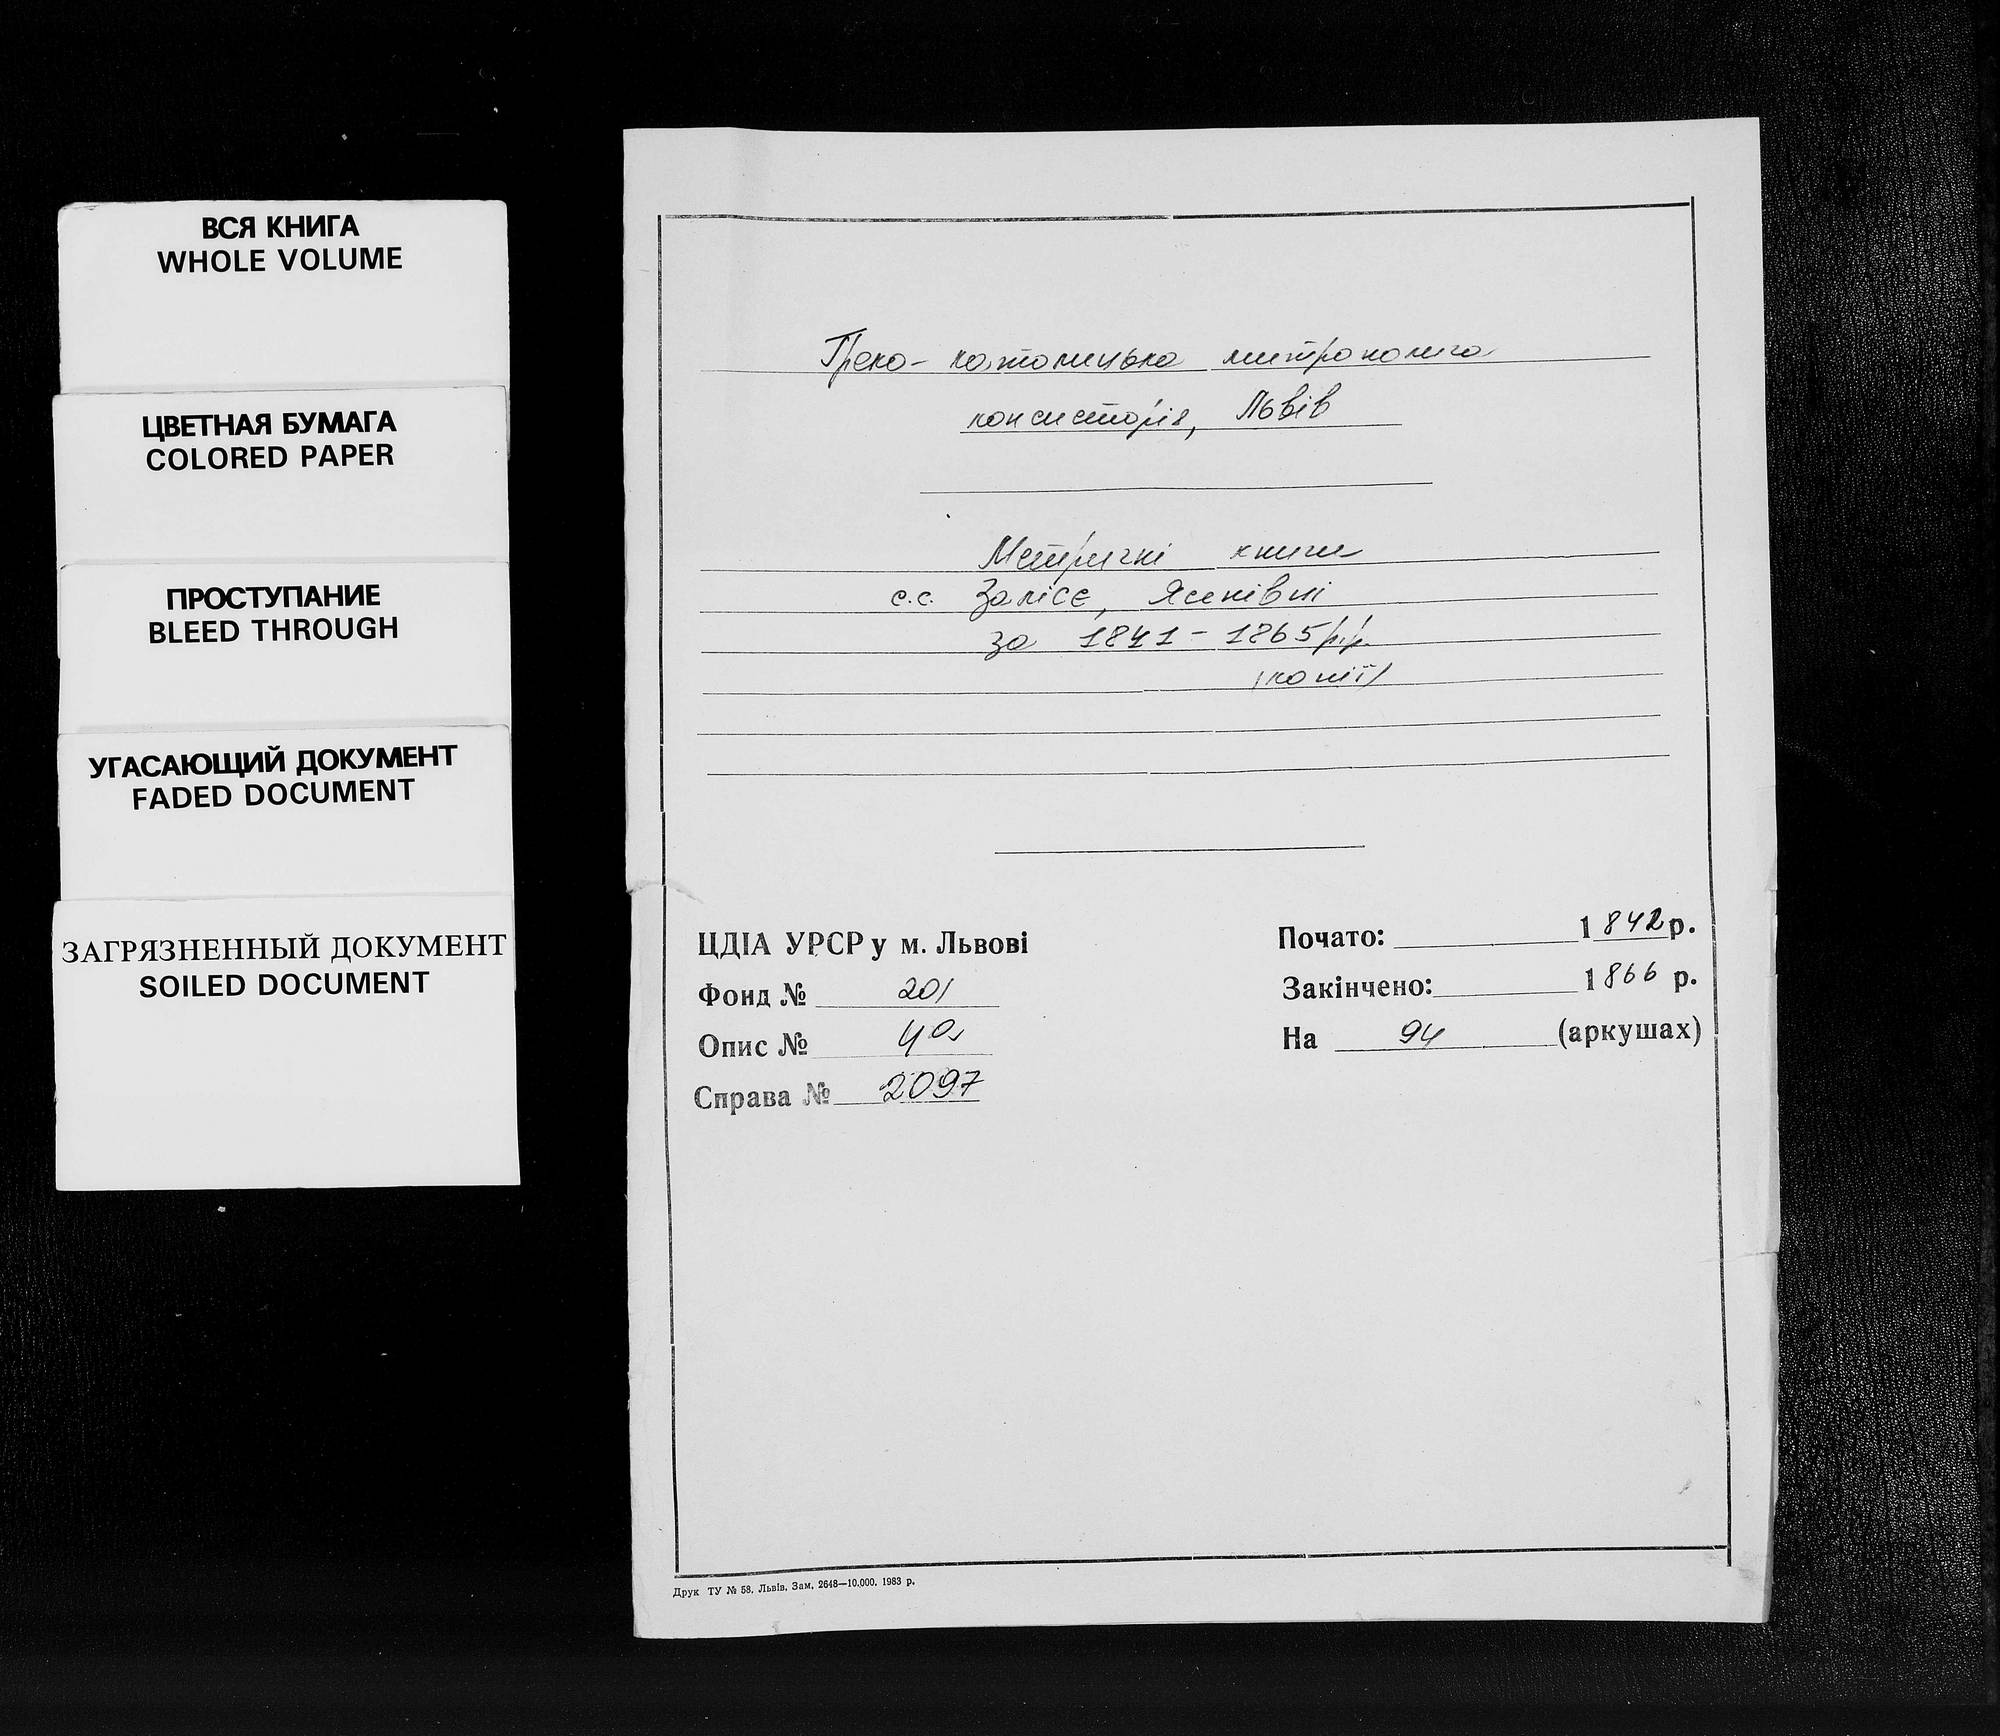 ВСЯ КНИГА
WHOLE VOLUME
ЦВЕТНАЯ БУМАГА
COLORED PAPER
ПРОСТУПАНИЕ
BLEED THROUGH
УГАСАЮЩИЙ ДОКУМЕНТ
FADED DOCUMENT
ЗАГРЯЗНЕННЫЙ ДОКУМЕНТ
SOILED DOCUMENT
Греко-католицька митрополича
консисторія, Львів
Метричні книги
с.с. Залісє, Ясенівці
за 1841-1865 р.р.
(копії)
ЦДІА УРСР у м. Львові
Фонд № 201
Опис № 4а
Справа № 2097
Почато: 1842 р.
Закінчено: 1866 р.
На 94 (аркушах)
Друк ТУ № 58. Львів. Зам. 2648—10.000. 1983 р.